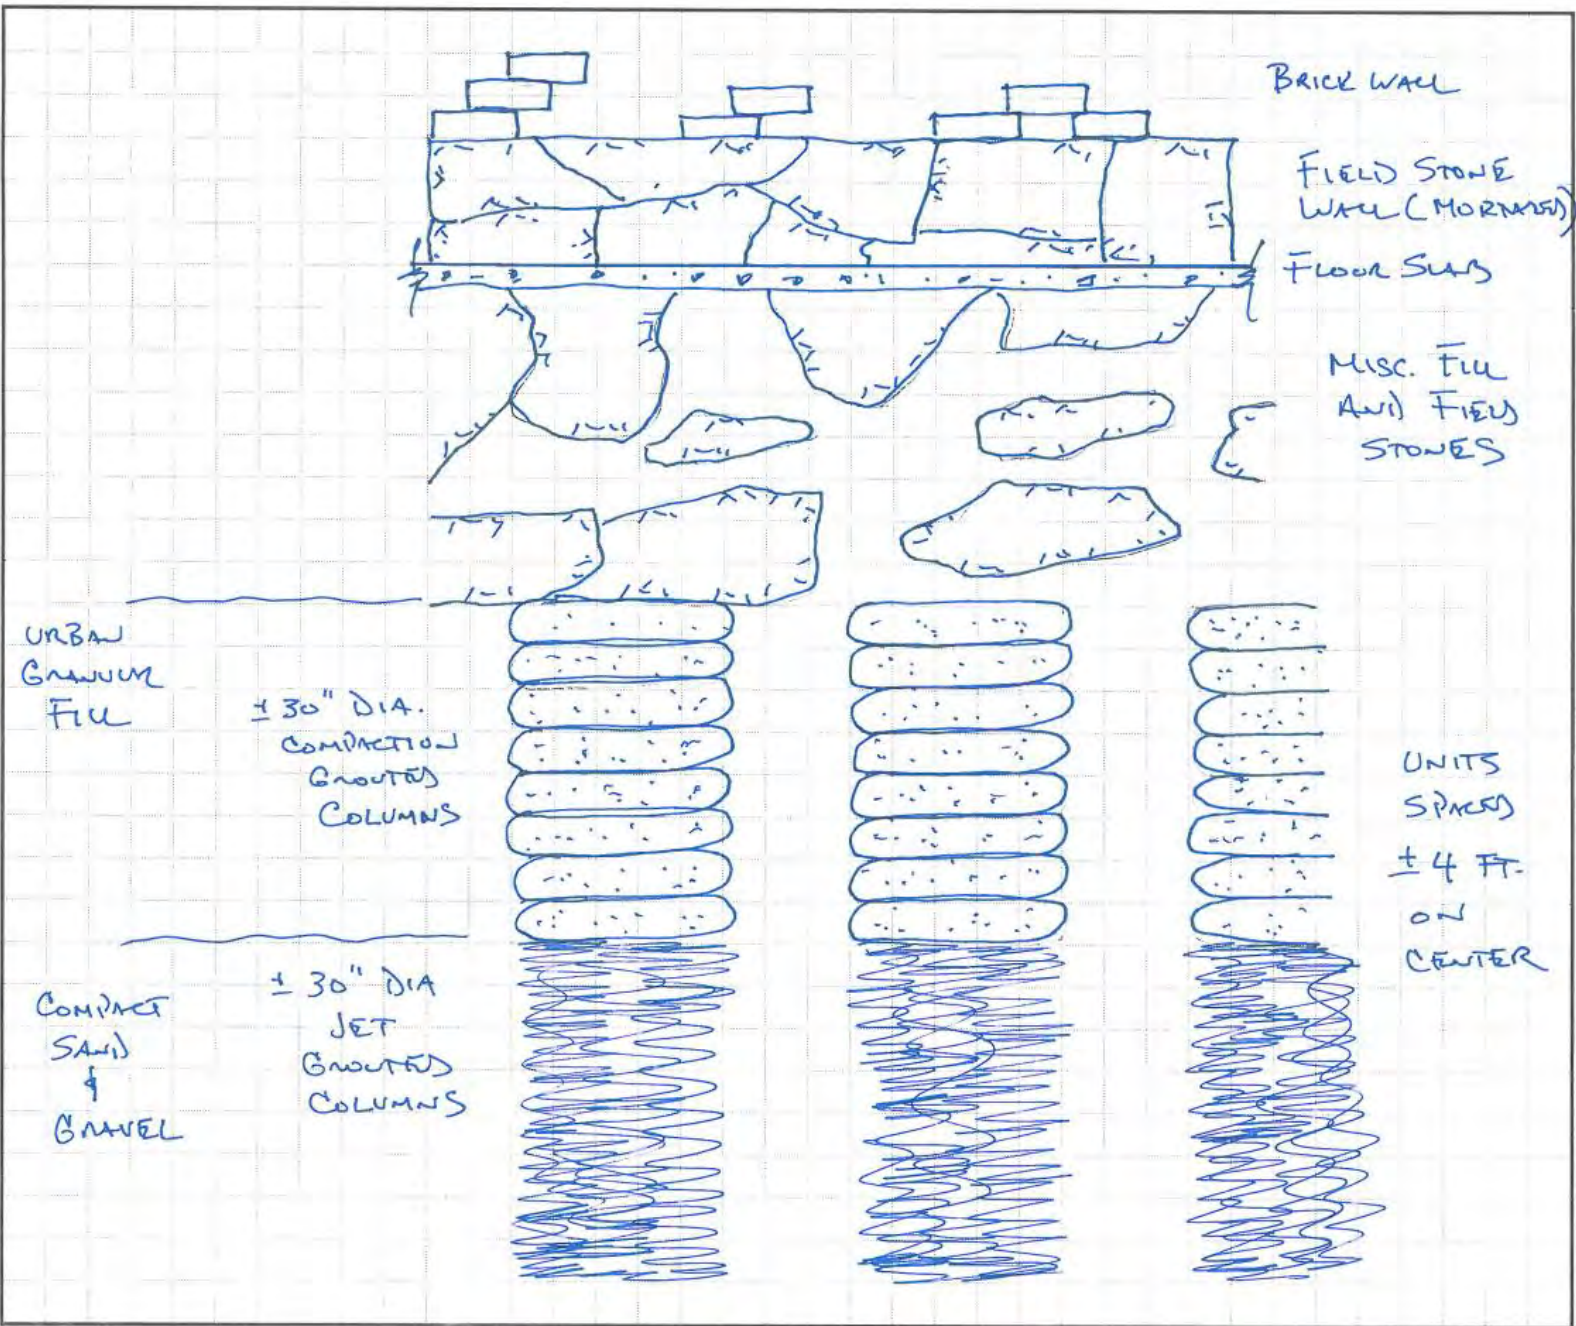 BRICK WALL
FIELD STONE
WALL (MORTARED)
FLOOR SLAB
MISC. FILL
AND FIELD
STONES
URBAN
GRANULAR
FILL
± 30" DIA.
COMPACTION
GROUTED
COLUMNS
UNITS
SPACED
± 4 FT.
ON
CENTER
COMPACT
SAND
&
GRAVEL
± 30" DIA
JET
GROUTED
COLUMNS